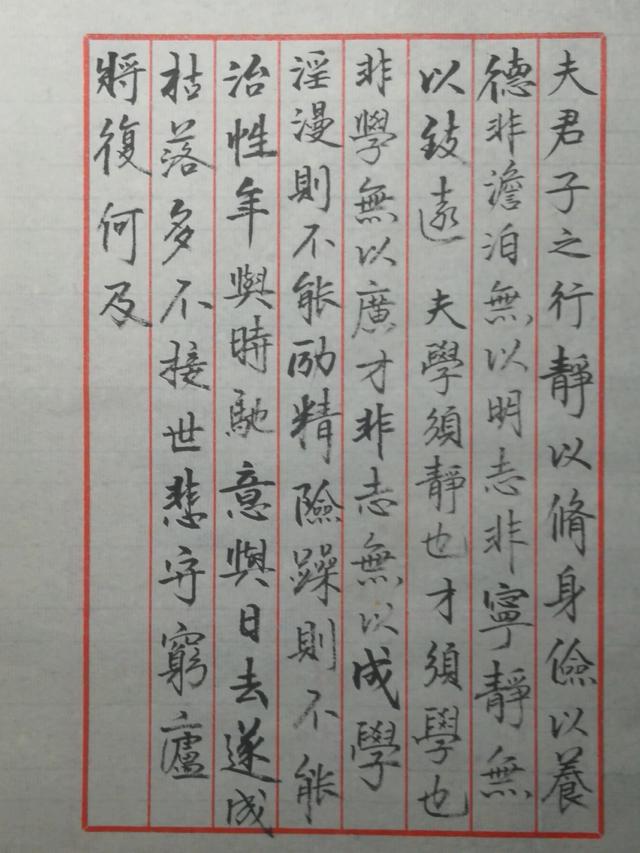 夫君子之行靜以脩身儉以養
德非澹泊無以明志非寧靜無
以致遠 夫學須靜也才須學也
非學無以廣才非志無以成學
淫漫則不能勵精險躁則不能
治性年與時馳意與日去遂成
枯落多不接世悲守窮廬
將復何及